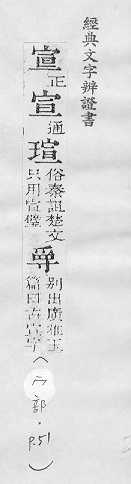 經典文字辨證書
宣正宣通瑄俗秦詛楚文只用宣璧別出廣雅玉篇曰古宣字(宀部.p.51)